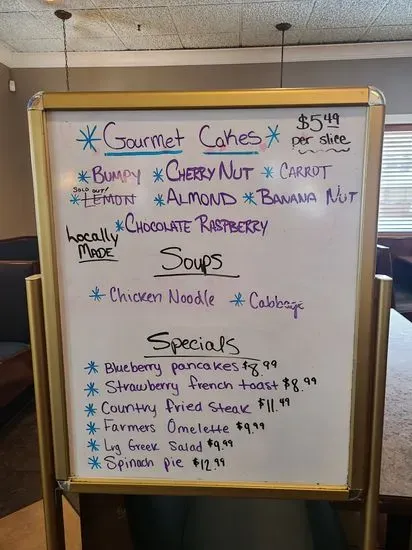 * Gourmet Cakes * $5.49
per slice
* BUMPY * CHERRY NUT * CARROT
SOLD OUT!
* LEMON * ALMOND * BANANA NUT
* CHOCOLATE RASPBERRY
Locally
MADE
Soups
* Chicken Noodle * Cabbage
Specials
* Blueberry pancakes $8.99
* Strawberry french toast $8.99
* Country fried steak $11.49
* Farmers Omelette $9.99
* Lrg Greek Salad $9.99
* Spinach pie $12.99